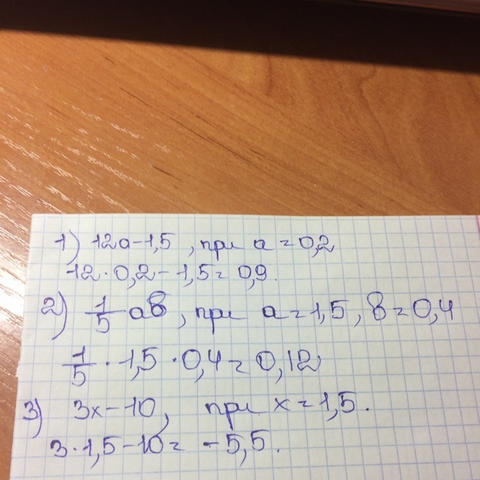 1) 12а-1,5, при а = 0,2
12·0,2-1,5=0,9.
2) 1/5 ав, при а=1,5, в=0,4
1/5 · 1,5 · 0,4 = 0,12
3) 3х-10, при х=1,5.
3·1,5-10= -5,5.